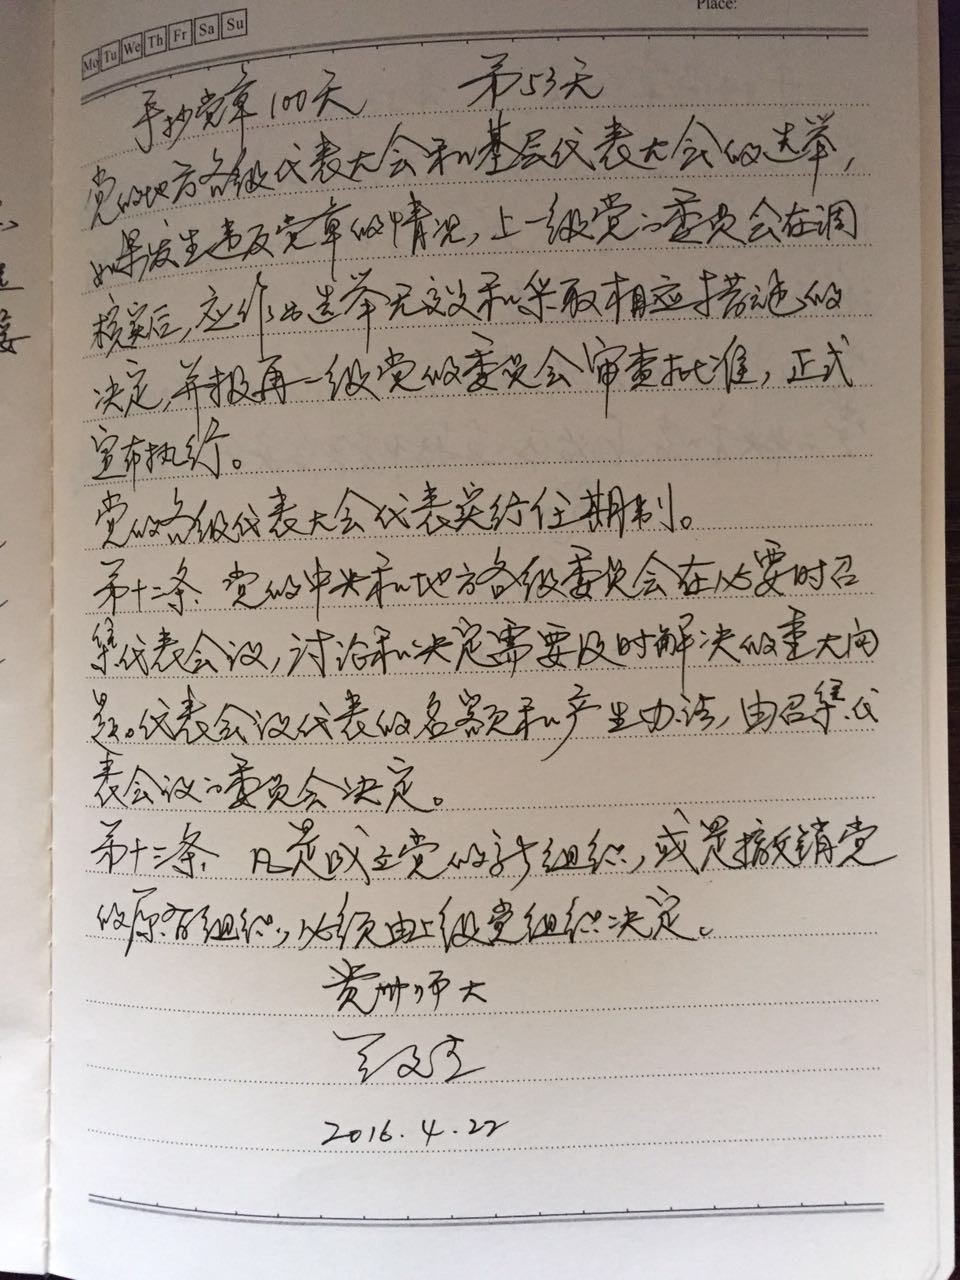 Place:
Mo Tu We Th Fr Sa Su
手抄党章100天 第53天
党的地方各级代表大会和基层代表大会的选举，
如果发生违反党章的情况，上一级党的委员会在调
核实后，应作出选举无效和采取相应措施的
决定，并报再一级党的委员会审查批准，正式
宣布执行。
党的各级代表大会代表实行任期制。
第十二条、党的中央和地方各级委员会在必要时召
集代表会议，讨论和决定需要及时解决的重大问
题。代表会议代表的名额和产生办法，由召集代
表会议的委员会决定。
第十三条、凡是成立党的新组织，或是撤销党
的原有组织，必须由上级党组织决定。
贵州师大
2016.4.22